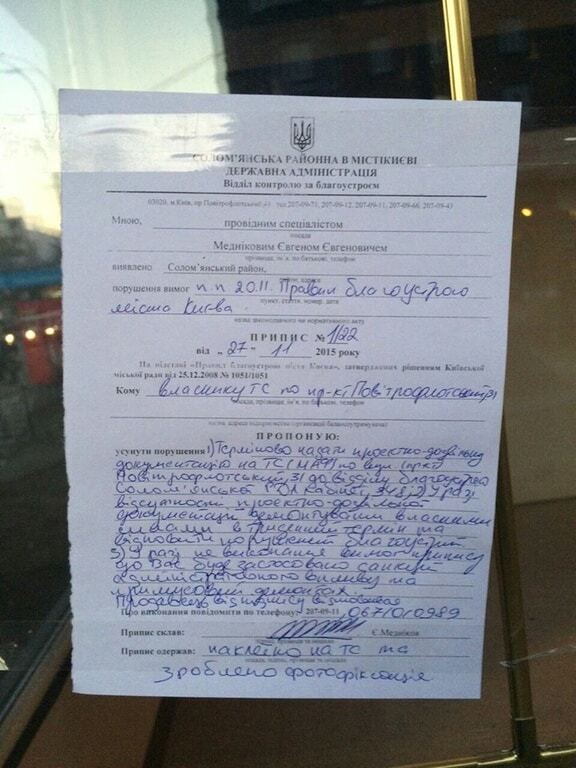 СОЛОМ'ЯНСЬКА РАЙОННА В МІСТІ КИЄВІ
ДЕРЖАВНА АДМІНІСТРАЦІЯ
Відділ контролю за благоустроєм
03020, м.Київ, пр Повітрофлотський тел.207-09-71, 207-09-12, 207-09-11, 207-09-66, 207-09-43
Мною, провідним спеціалістом
посада
Медніковим Євгеном Євгеновичем
прізвище, ім'я, по батькові, телефон
виявлено Солом'янський район,
порушення вимог п.п 20.1.1. Правил благоустрою
пункт, стаття, номер, дата
міста Києва
назва законодавчого чи нормативного акту
ПРИПИС № 1/22
від „ 27 " 11 2015 року
На підставі «Правил благоустрою міста Києва», затверджених рішенням Київської
міської ради від 25.12.2008 № 1051/1051
Кому власнику ТС по пр-кт Повітрофлотський 31
посада, прізвище, ім'я, по батькові, телефон
ПРОПОНУЮ:
усунути порушення 1) Терміново надати проектно-дозвільну
документацію на ТС (МАФ) по
Повітрофлотський 31 до відділу благоустрою
Солом'янської РДА Кабінет У разі
відсутності проектно-дозвільної
документації демонтувати власними
силами в триденний термін та
відновити порушений благоустрій
У разі не виконання вимог припису
до Вас буде застосовано санкції
адміністративного впливу та
примусовий демонтаж
Продавець від підпису
Про виконання повідомити по телефону: 207-09-11
Припис склав: Є.Медніков
Припис одержав: наклеїно на ТС та
зроблено фотофіксація